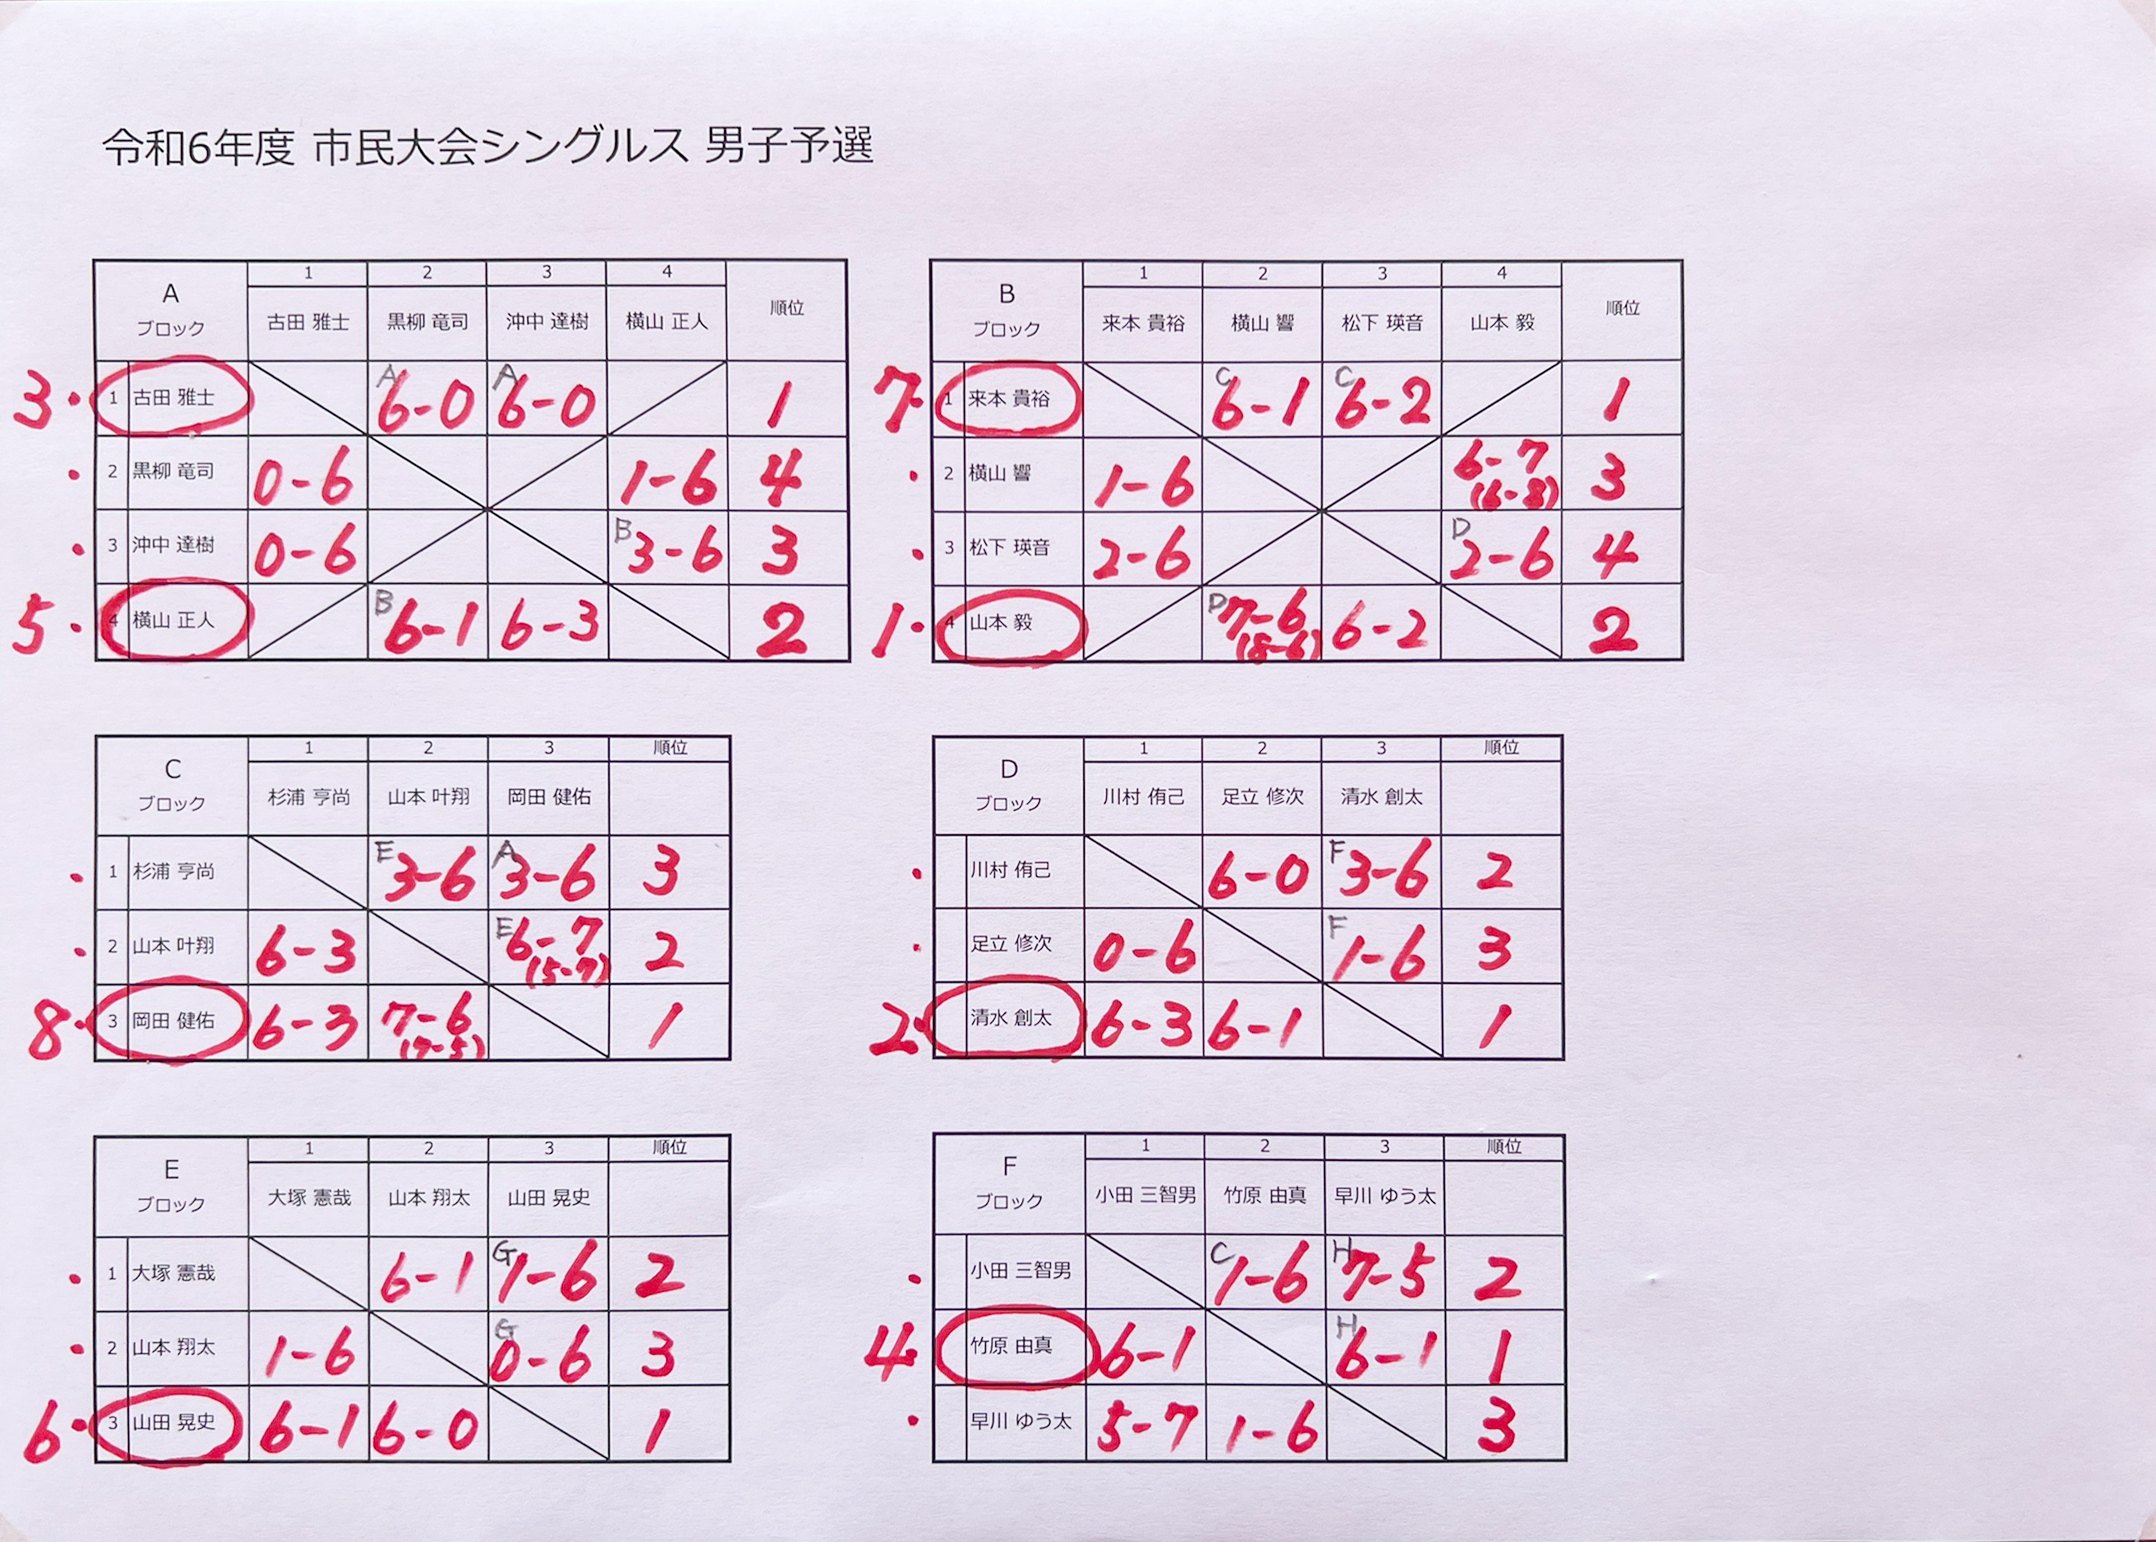 令和6年度 市民大会シングルス 男子予選
A ブロック 1 2 3 4 順位
古田 雅士 黒柳 竜司 沖中 達樹 横山 正人
3 1 古田 雅士 A 6-0 A 6-0 1
2 黒柳 竜司 0-6 1-6 4
3 沖中 達樹 0-6 B 3-6 3
5 4 横山 正人 B 6-1 6-3 2
B ブロック 1 2 3 4 順位
来本 貴裕 横山 響 松下 瑛音 山本 毅
7 1 来本 貴裕 C 6-1 C 6-2 1
2 横山 響 1-6 6-7 (6-8) 3
3 松下 瑛音 2-6 D 2-6 4
1 4 山本 毅 D 7-6 (8-6) 6-2 2
C ブロック 1 2 3 順位
杉浦 亨尚 山本 叶翔 岡田 健佑
1 杉浦 亨尚 E 3-6 A 3-6 3
2 山本 叶翔 6-3 E 6-7 (5-7) 2
8 3 岡田 健佑 6-3 7-6 (7-5) 1
D ブロック 1 2 3 順位
川村 侑己 足立 修次 清水 創太
川村 侑己 6-0 F 3-6 2
足立 修次 0-6 F 1-6 3
2 清水 創太 6-3 6-1 1
E ブロック 1 2 3 順位
大塚 憲哉 山本 翔太 山田 晃史
1 大塚 憲哉 6-1 G 1-6 2
2 山本 翔太 1-6 G 0-6 3
6 3 山田 晃史 6-1 6-0 1
F ブロック 1 2 3 順位
小田 三智男 竹原 由真 早川 ゆう太
小田 三智男 C 1-6 H 7-5 2
4 竹原 由真 6-1 H 6-1 1
早川 ゆう太 5-7 1-6 3